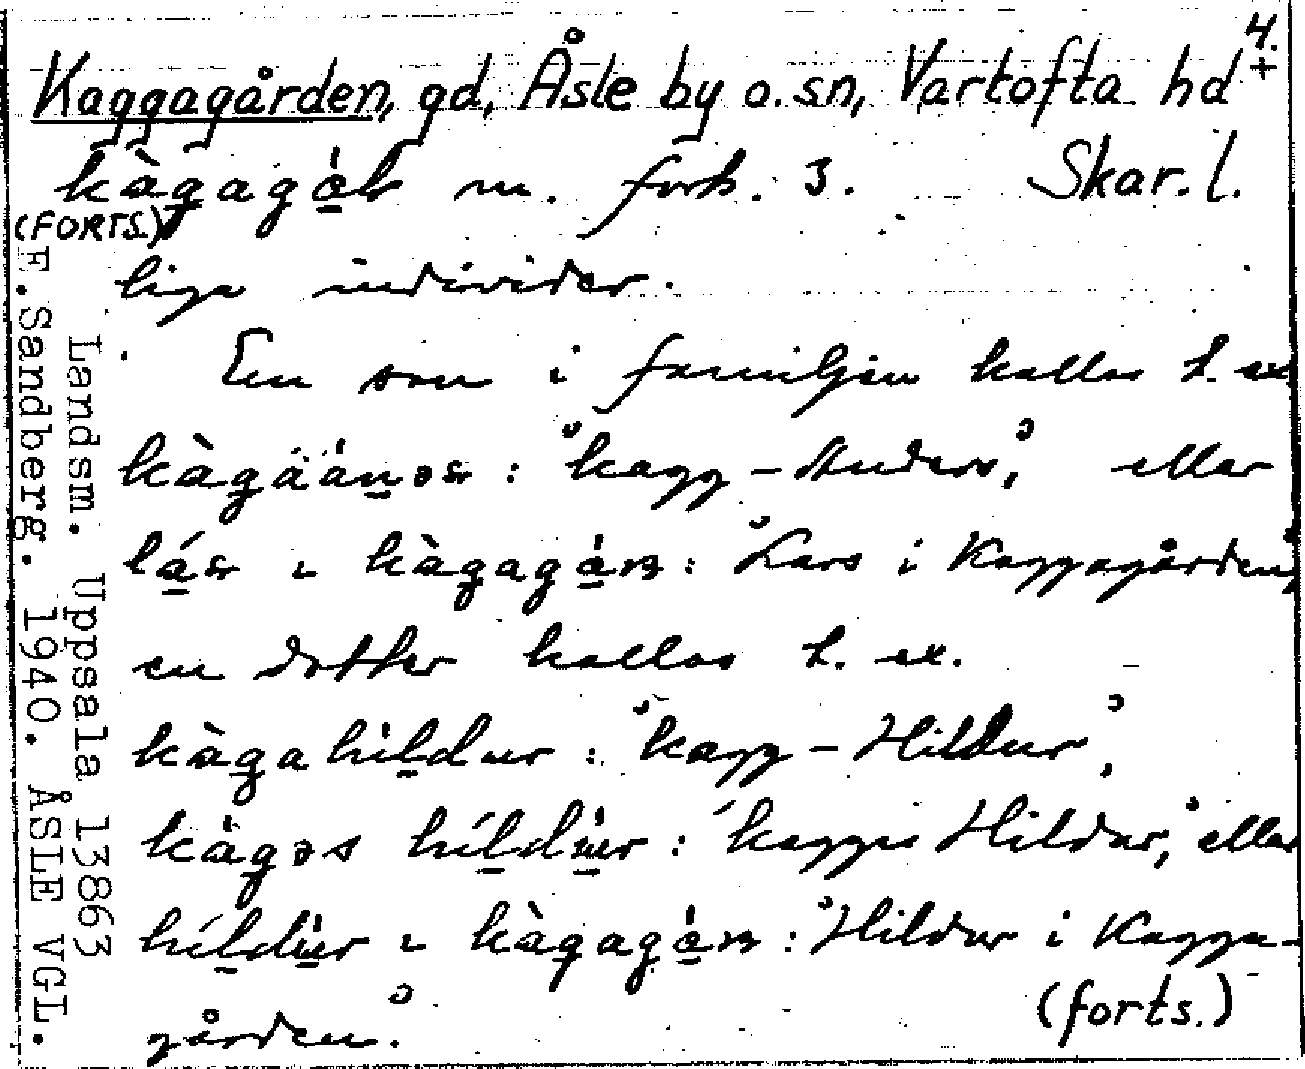 4.
Kaggagården, gd, Åsle by o. sn, Vartofta hd +
kàgagáḷ m. forts. 3. Skar. l.
(FORTS.)
liga individer.
En son i familjen kallas t. ex
kàgäánəs : "kagg-Anders", eller
lás i kàgagán : "Lars i Kaggagården",
en dotter kallas t. ex.
kàgahildur : "kagg-Hildur",
kàgəs híldùr : "kagges Hildur", eller
híldùr i kàgagán : "Hildur i Kagga-
gården".
(forts.)
Landsm. Uppsala 13863
F. Sandberg. 1940. ÅSLE VGL.